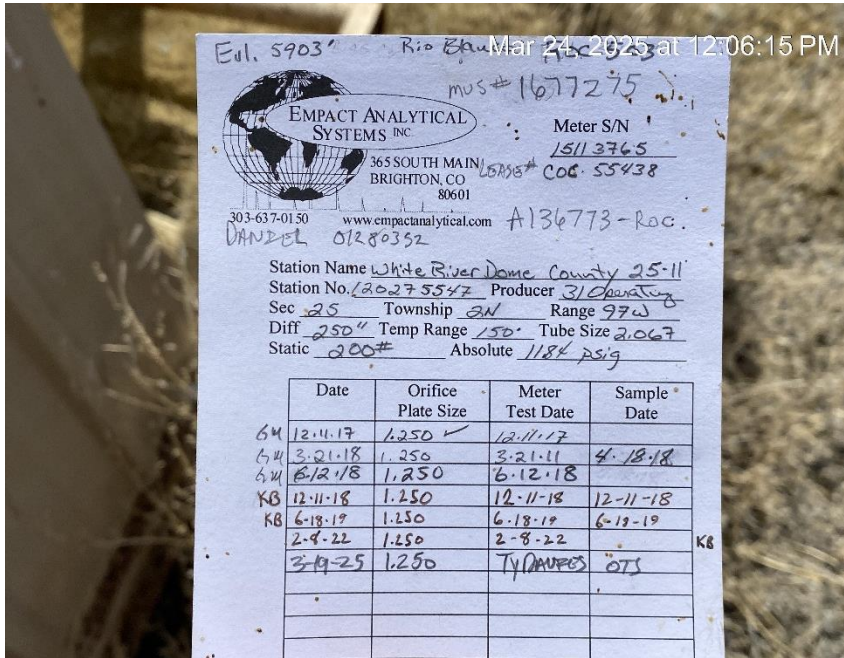 Mar 24, 2025 at 12:06:15 PM
Evl. 5903' Rio
mus# 1677275
EMPACT ANALYTICAL
SYSTEMS INC
Meter S/N
15113765
365 SOUTH MAIN
BRIGHTON, CO
80601
LEASE# COC. 55438
303-637-0150 www.empactanalytical.com
A136773-ROC.
DANZEL 01280352
Station Name White River Dome County 25-11
Station No. 120275547 Producer 31 Operating
Sec 25 Township 2N Range 97W
Diff 250" Temp Range 150° Tube Size 2.067
Static 200# Absolute 11.84 psig
Date Orifice Plate Size Meter Test Date Sample Date
GM 12.11.17 1.250 ✓ 12.11.17
GM 3.21.18 1.250 3.21.11 4.18.18
GM 6.12.18 1.250 6.12.18
KB 12-11-18 1.250 12-11-18 12-11-18
KB 6-18-19 1.250 6-18-19 6-19-19
2-8-22 1.250 2-8-22 KB
3-19-25 1.250 Ty OTS